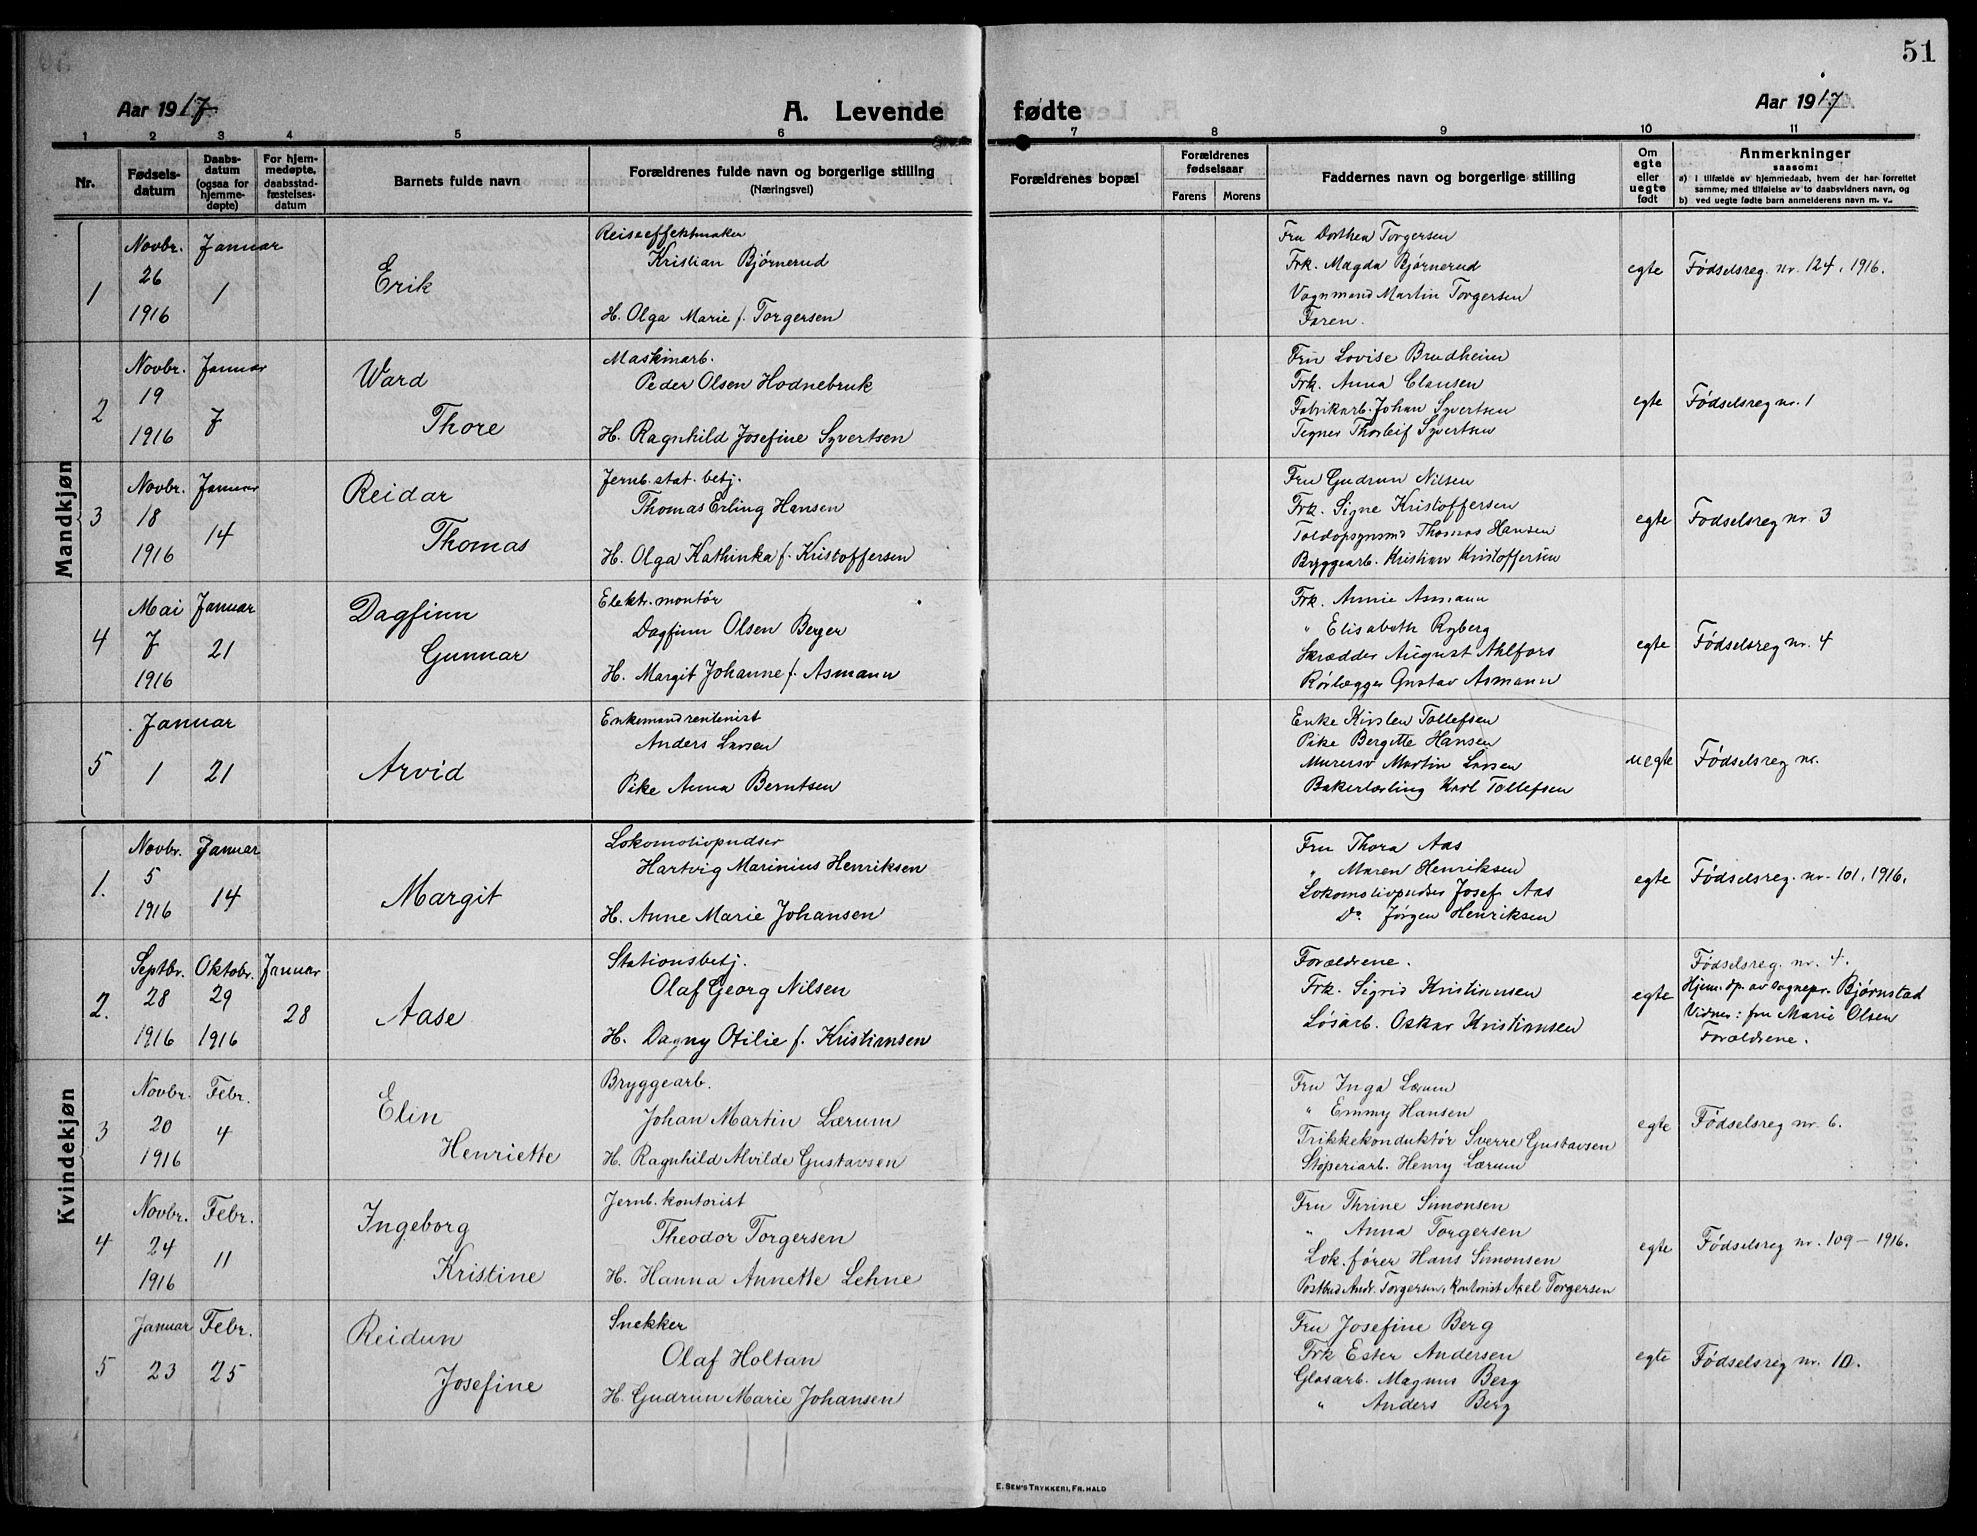 51
Aar 1917
A. Levende fødte
Aar 1917
1 2 3 4 5 6 7 8 9 10 11
Nr.
Fødsels-
datum
Daabs-
datum
(ogsaa for
hjemme-
døpte)
For hjem-
medøpte,
daabsstad-
fæstelses-
datum
Barnets fulde navn
Forældrenes fulde navn og borgerlige stilling
(Næringsvei)
Forældrenes bopæl
Forældrenes
fødselsaar
Farens Morens
Faddernes navn og borgerlige stilling
Om
egte
eller
uegte
født
Anmerkninger
saasom:
a) I tilfælde av hjemmedaab, hvem der har forrettet
samme, med tilføielse av to daabsvidners navn, og
b) ved uegte fødte barn anmelderens navn m. v.
Mandkjøn
1
Novbr.
26
1916
Januar
1
Erik
Reiseeffektmaker
Kristian Bjørnerud
H. Olga Marie f. Torgersen
Fru Dorthea Torgersen
Frk. Magda Bjørnerud
Vognmand Martin Torgersen
Faren.
egte
Fødselsreg. nr. 124, 1916.
2
Novbr.
19
1916
Januar
7
Ward
Thore
Maskinarb.
Peder Olsen Hodnebruk
H. Ragnhild Josefine Syvertsen
Fru Lovise Brudheim
Frk. Anna Clausen
Fabrikarb. Johan Syvertsen
Tegner Thorleif Syvertsen
egte
Fødselsreg nr. 1
3
Novbr.
18
1916
Januar
14
Reidar
Thomas
Jernb. stat. betj.
Thomas Erling Hansen
H. Olga Kathinka f. Kristoffersen
Fru Gudrun Nilsen
Frk. Signe Kristoffersen
Toldopsynsmd Thomas Hansen
Bryggearb. Kristian Kristoffersen
egte
Fødselsreg nr. 3
4
Mai
7
1916
Januar
21
Dagfinn
Gunnar
Elektr. montør
Dagfinn Olsen Berger
H. Margit Johanne f. Asmann
Frk. Annie Asmann
" Elisabeth Ryberg
Skrædder August Ahlfors
Rørlægger Gustav Asmann
egte
Fødselsreg nr. 4
5
Januar
1
21
Arvid
Enkemand rentenist
Anders Larsen
Pike Anna Berntsen
Enke Kirsten Tollefsen
Pike Bergitte Hansen
Murersv Martin Larsen
Bakerlærling Karl Tollefsen
uegte
Fødselsreg nr.
Kvindekjøn
1.
Novbr.
5
1916
Januar
14
Margit
Lokomotivpudser
Hartvig Marinius Henriksen
H. Anne Marie Johansen
Fru Thora Aas
" Maren Henriksen
Lokomotivpudser Josef Aas
Do Jørgen Henriksen
egte
Fødselsreg. nr. 101, 1916.
2.
Septbr.
28
1916
Oktobr.
29
1916
Januar
28
Aase
Stationsbetj.
Olaf Georg Nilsen
H. Dagny Otilie f. Kristiansen
Forældrene.
Frk. Sigrid Kristiansen
Løsarb. Oskar Kristiansen
egte
Fødselsreg. nr. 4.
Hjem.dp. av sognepr. Bjørnstad
Vidner: fru Marie Olsen
Forældrene.
3
Novbr.
20
1916
Febr.
4
Elin
Henriette
Bryggearb.
Johan Martin Lærum
H. Ragnhild Alvilde Gustavsen
Fru Inga Lærum
" Emmy Hansen
Trikkekonduktør Sverre Gustavsen
Støperiarb. Henry Lærum
egte
Fødselsreg nr. 6.
4
Novbr.
24
1916
Febr.
11
Ingeborg
Kristine
Jernb. kontorist
Theodor Torgersen
H. Hanna Annette Lehne
Fru Thrine Simonsen
" Anna Torgersen
Lok. fører Hans Simonsen
Postbud Andr. Torgersen, Kontorist Axel Torgersen
egte
Fødselsreg nr. 109 – 1916.
5
Januar
23
Febr.
25
Reidun
Josefine
Snekker
Olaf Holtan
H. Gudrun Marie Johansen
Fru Josefine Berg
Frk Ester Andersen
Glasarb. Magnus Berg
" Anders Berg
egte
Fødselsreg nr. 10.
E. SEM'S TRYKKERI, FR.HALD